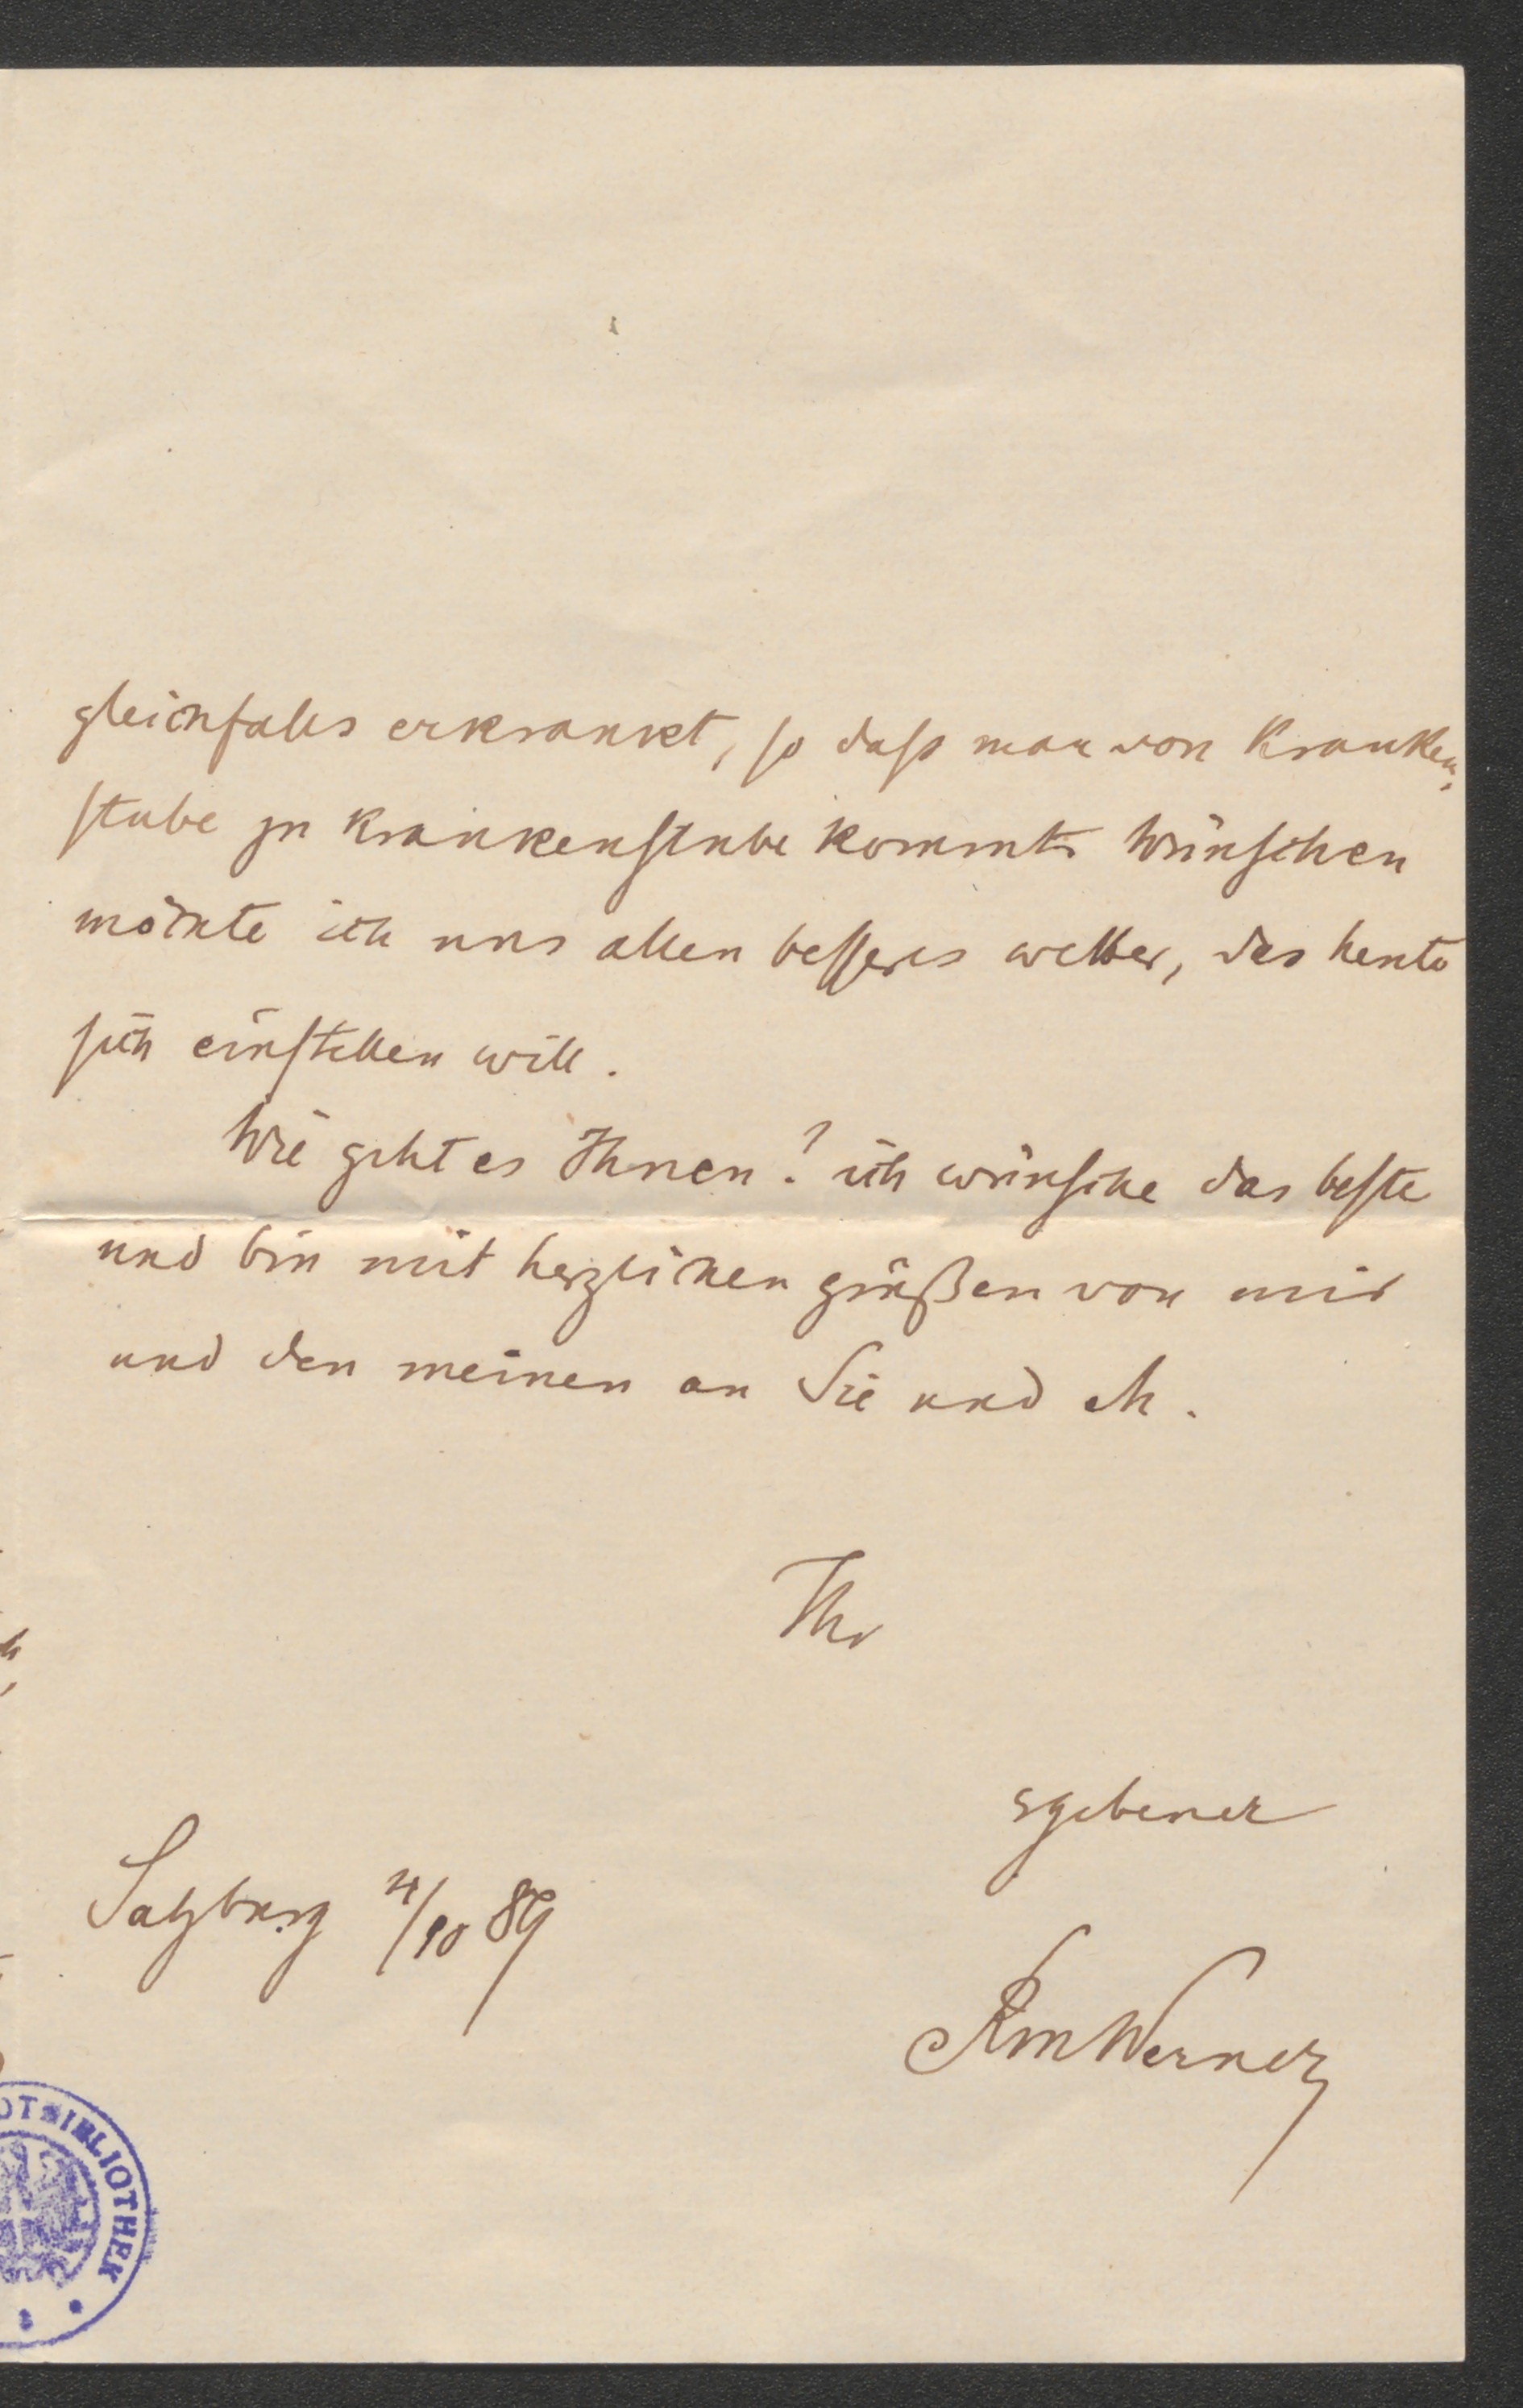 gleichfalls erkrankt, so dass man von Kranken-
stube zu Krankenstube kommt. Wünschen
möchte ich uns allen besseres wetter, das heute
sich einstellen will.
Wie geht es Ihnen? ich wünsche das beste
und bin mit herzlichen grüßen von mir
und den meinen an Sie und
Ihr
ergebener
Salzburg 4/10 89
RMWerner
BIBLIOTHEK